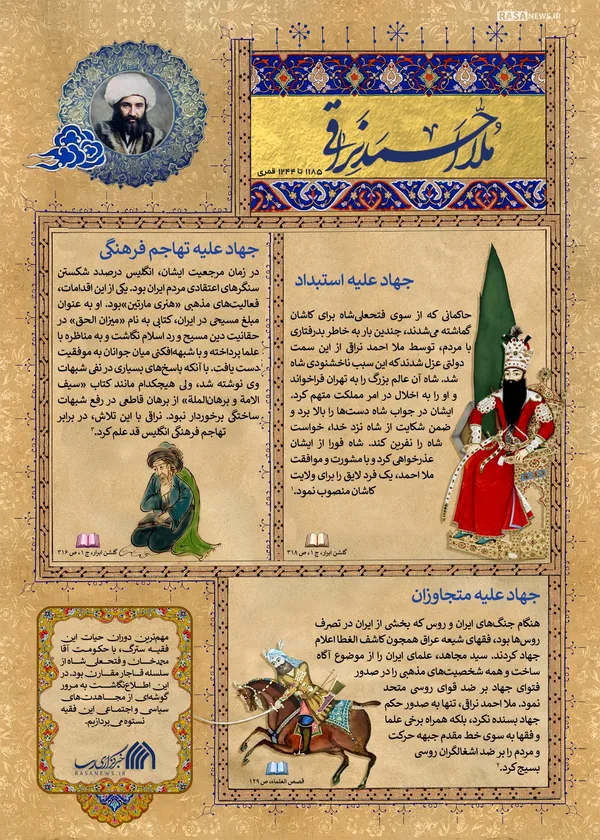 RASANEWS.IR
ملا احمد نراقی
۱۱۸۵ تا ۱۲۴۴ قمری
جهاد علیه استبداد
حاکمانی که از سوی فتحعلی‌شاه برای کاشان
گماشته می‌شدند، چندین بار به خاطر بدرفتاری
با مردم، توسط ملا احمد نراقی از این سمت
دولتی عزل شدند که این سبب ناخشنودی شاه
شد. شاه آن عالم بزرگ را به تهران فراخواند
و او را به اخلال در امر مملکت متهم کرد.
ایشان در جواب شاه دست‌ها را بالا برد و
ضمن شکایت از شاه نزد خدا، خواست
شاه را نفرین کند. شاه فورا از ایشان
عذرخواهی کرد و با مشورت و موافقت
ملا احمد، یک فرد لایق را برای ولایت
کاشان منصوب نمود.۱
گلشن ابرار، ج ۱، ص ۳۱۸
جهاد علیه تهاجم فرهنگی
در زمان مرجعیت ایشان، انگلیس درصدد شکستن
سنگرهای اعتقادی مردم ایران بود. یکی از این اقدامات،
فعالیت‌های مذهبی «هنری مارتین»بود. او به عنوان
مبلغ مسیحی در ایران، کتابی به نام «میزان الحق» در
حقانیت دین مسیح و رد اسلام نگاشت و به مناظره با
علما پرداخته و با شبهه‌افکنی میان جوانان به موفقیت
دست یافت. با آنکه پاسخ‌های بسیاری در نفی شبهات
وی نوشته شد، ولی هیچکدام مانند کتاب «سیف
الامة و برهان‌الملة» از برهان قاطعی در رفع شبهات
ساختگی برخوردار نبود. نراقی با این تلاش، در برابر
تهاجم فرهنگی انگلیس قد علم کرد.۲
گلشن ابرار، ج ۱، ص ۳۱۶
جهاد علیه متجاوزان
هنگام جنگ‌های ایران و روس که بخشی از ایران در تصرف
روس‌ها بود، فقهای شیعه عراق همچون کاشف الغطا اعلام
جهاد کردند. سید مجاهد، علمای ایران را از موضوع آگاه
ساخت و همه شخصیت‌های مذهبی را در صدور
فتوای جهاد بر ضد قوای روسی متحد
نمود. ملا احمد نراقی، تنها به صدور حکم
جهاد بسنده نکرد، بلکه همراه برخی علما
و فقها به سوی خط مقدم جبهه حرکت
و مردم را بر ضد اشغالگران روسی
بسیج کرد.۳
قصص العلماء، ص ۱۲۹
مهم‌ترین دوران حیات این
فقیه سترگ، با حکومت آقا
محمدخان و فتحعلی شاه از
سلسله قاجار مقارن بود. در
این اطلاع‌نگاشت به مرور
گوشه‌ای از مجاهدت‌های
سیاسی و اجتماعی این فقیه
نستوه می‌پردازیم.
خبرگزاری رسا
RASANEWS.IR